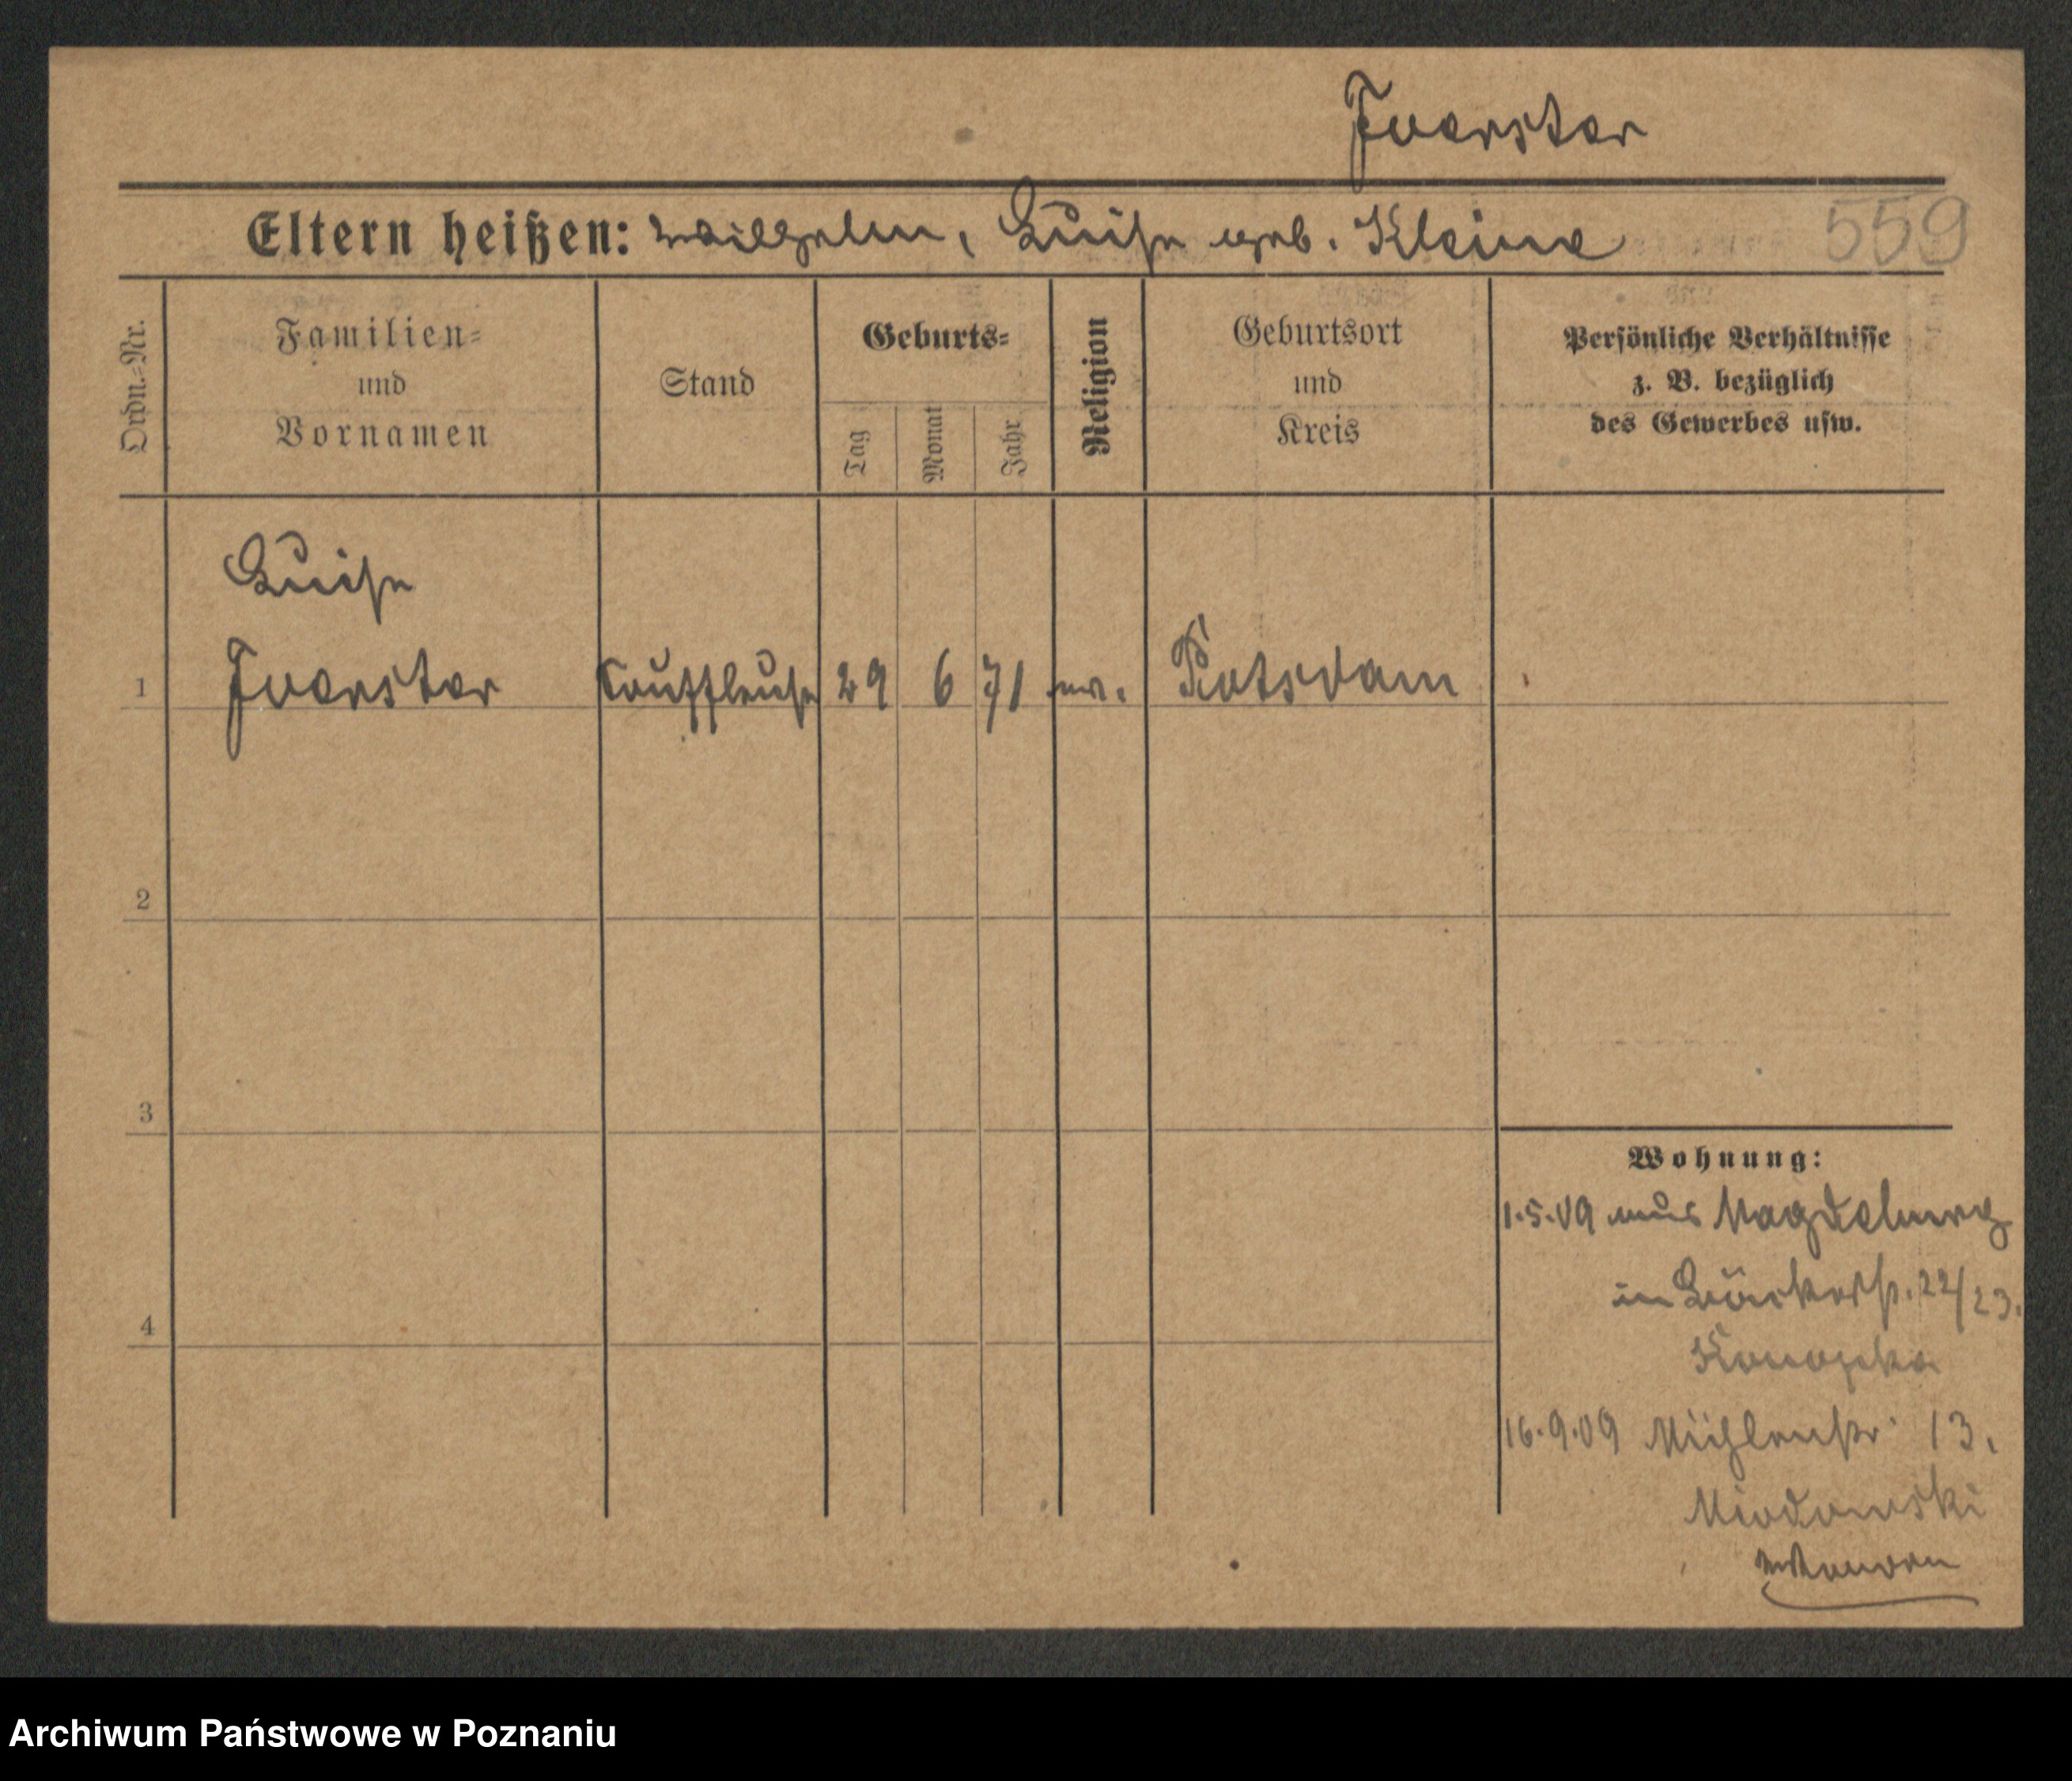 Foerster
Eltern heißen: Wilhelm, Luise geb. Kleine
559
Ordn.-Nr.
Familien-
und
Vornamen
Stand
Geburts-
Tag
Monat
Jahr
Religion
Geburtsort
und
Kreis
Persönliche Verhältnisse
z. B. bezüglich
des Gewerbes usw.
Luise
1 Foerster Souffleuse 29 6 71 ev. Potsdam
2
3
4
Wohnung:
1.5.09 aus Magdeburg
in Bäckerstr. 22/23.
Konopka
16.9.09 Mühlenstr. 13.
Miodowski
Archiwum Państwowe w Poznaniu